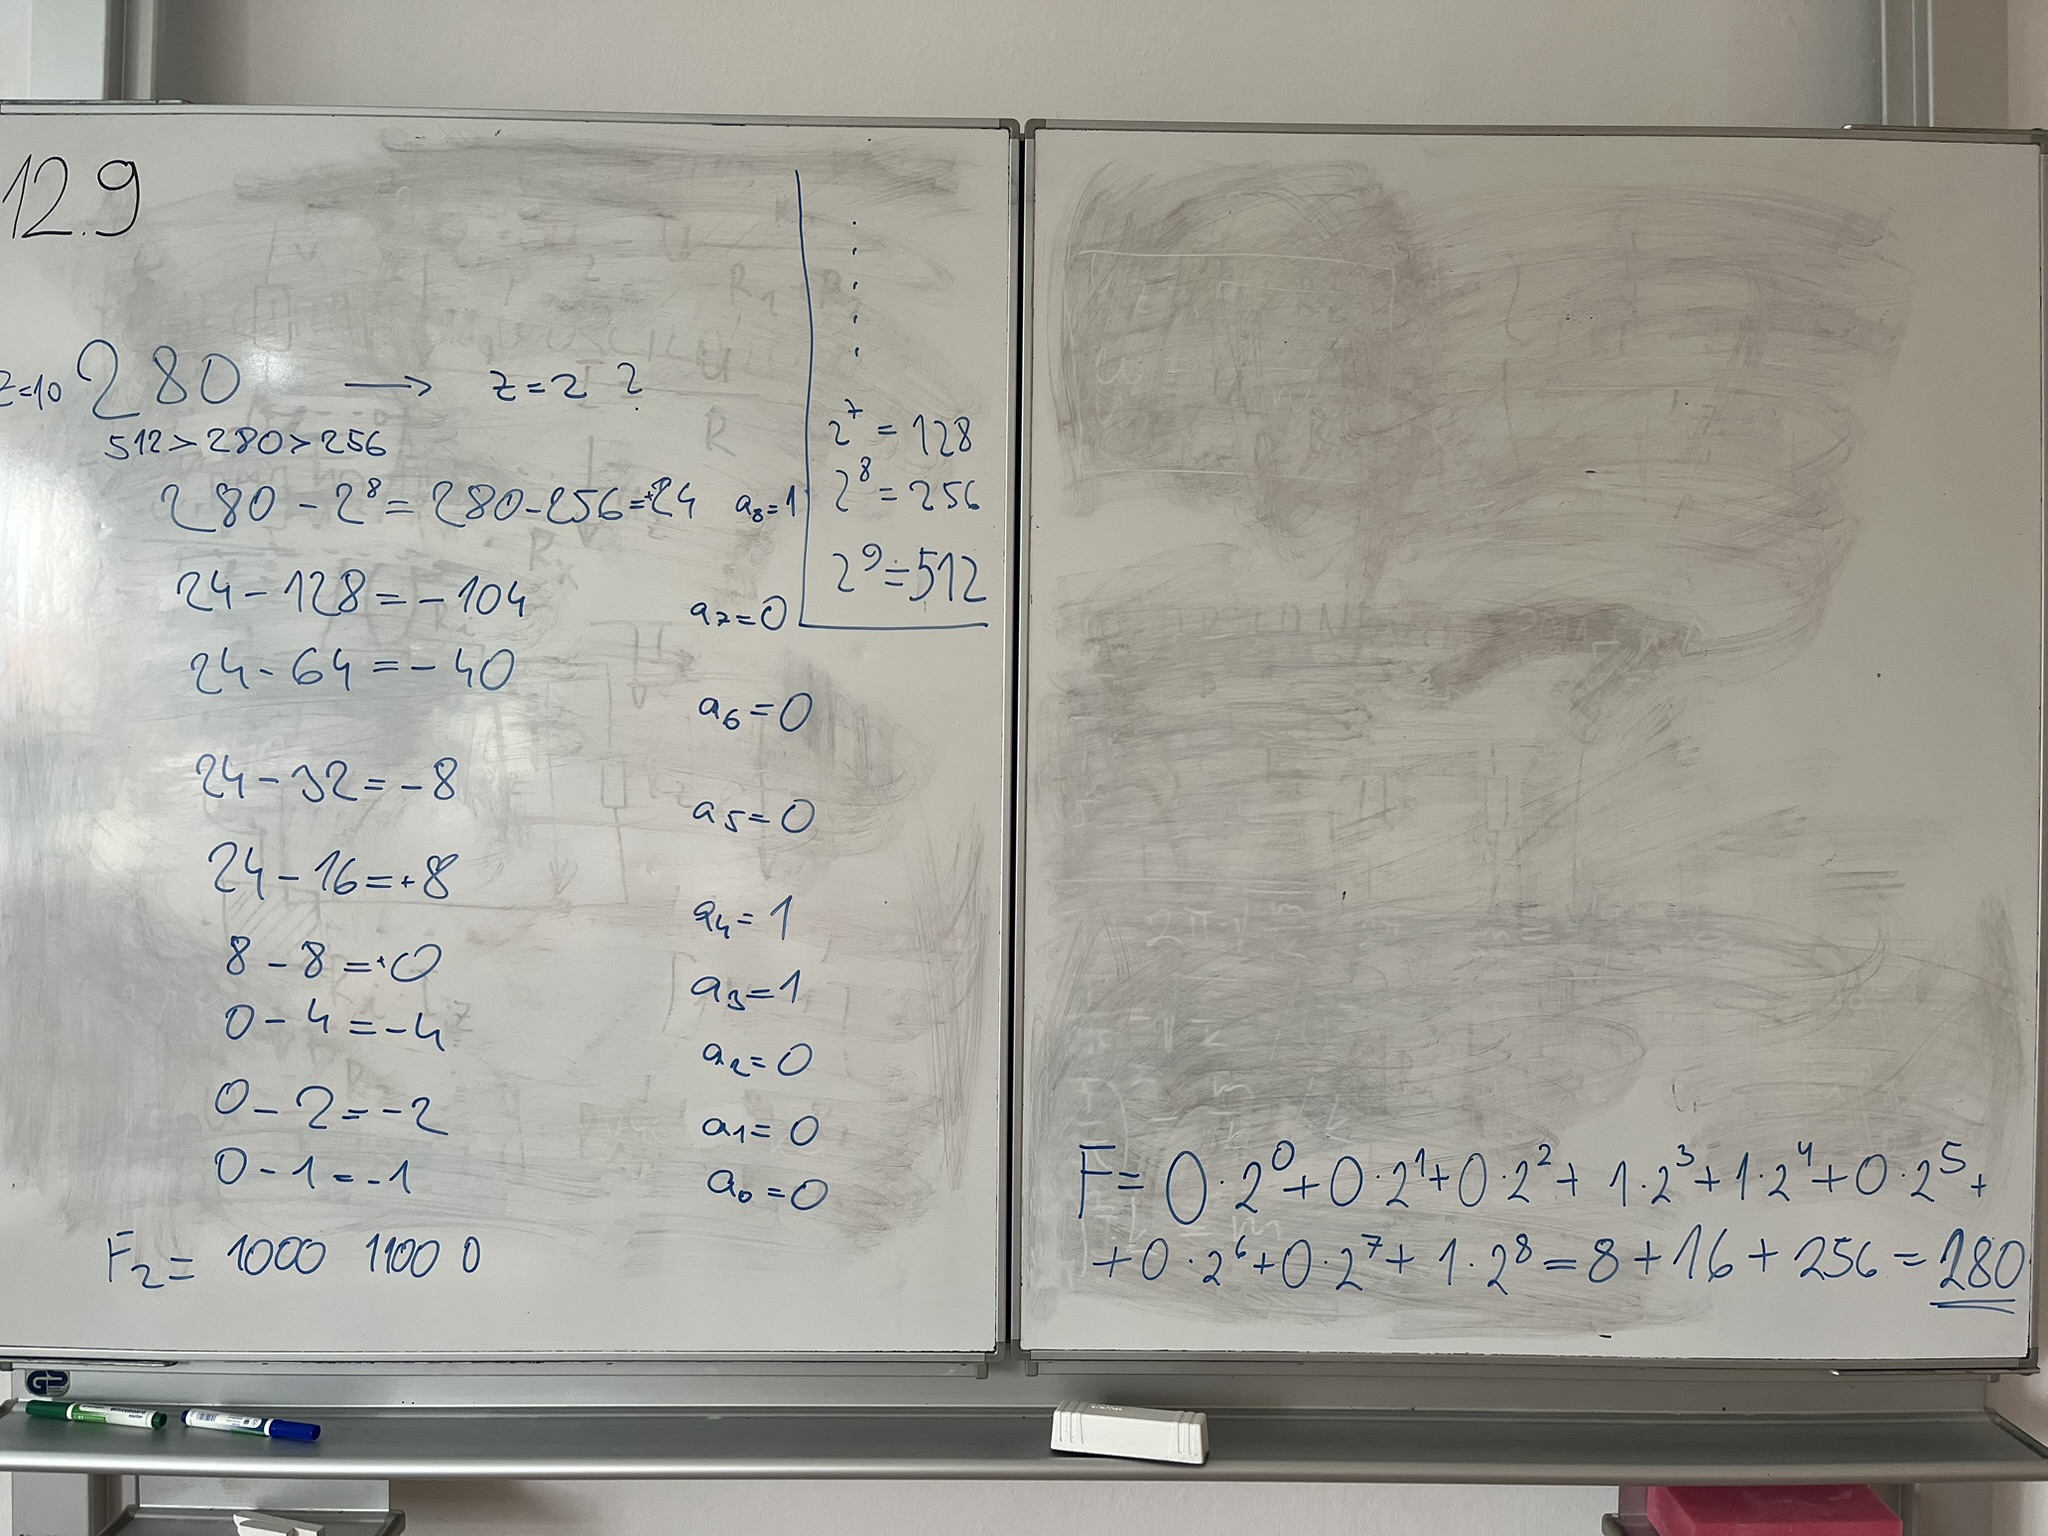 12.9
z=10 280 → z=2 ?
512>280>256
280 - 2⁸ = 280-256=+24 a₈=1
24-128=-104 a₇=0
24-64=-40 a₆=0
24-32=-8 a₅=0
24-16=+8 a₄=1
8-8=+0 a₃=1
0-4=-4 a₂=0
0-2=-2 a₁=0
0-1=-1 a₀=0
F₂= 1000 1100 0
2⁷ = 128
2⁸ = 256
2⁹ = 512
F= 0·2⁰+0·2¹+0·2²+ 1·2³+1·2⁴+0·2⁵+
+0·2⁶+0·2⁷+ 1·2⁸=8+16+256=280